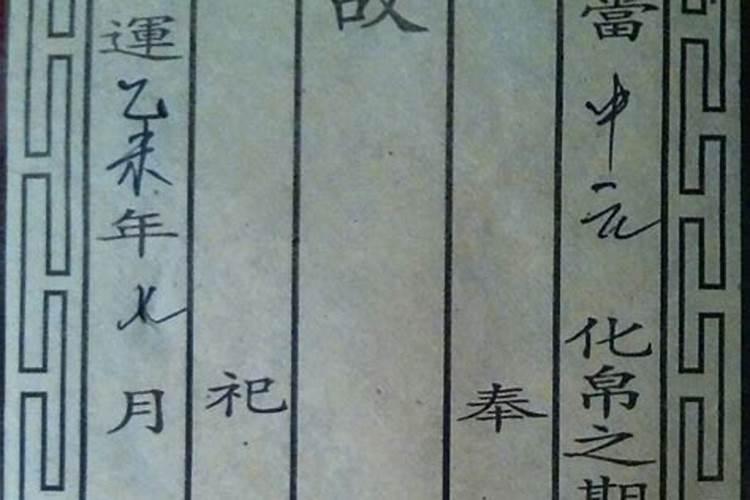 當中元化帛之期
奉
故
祀
運乙未年七月